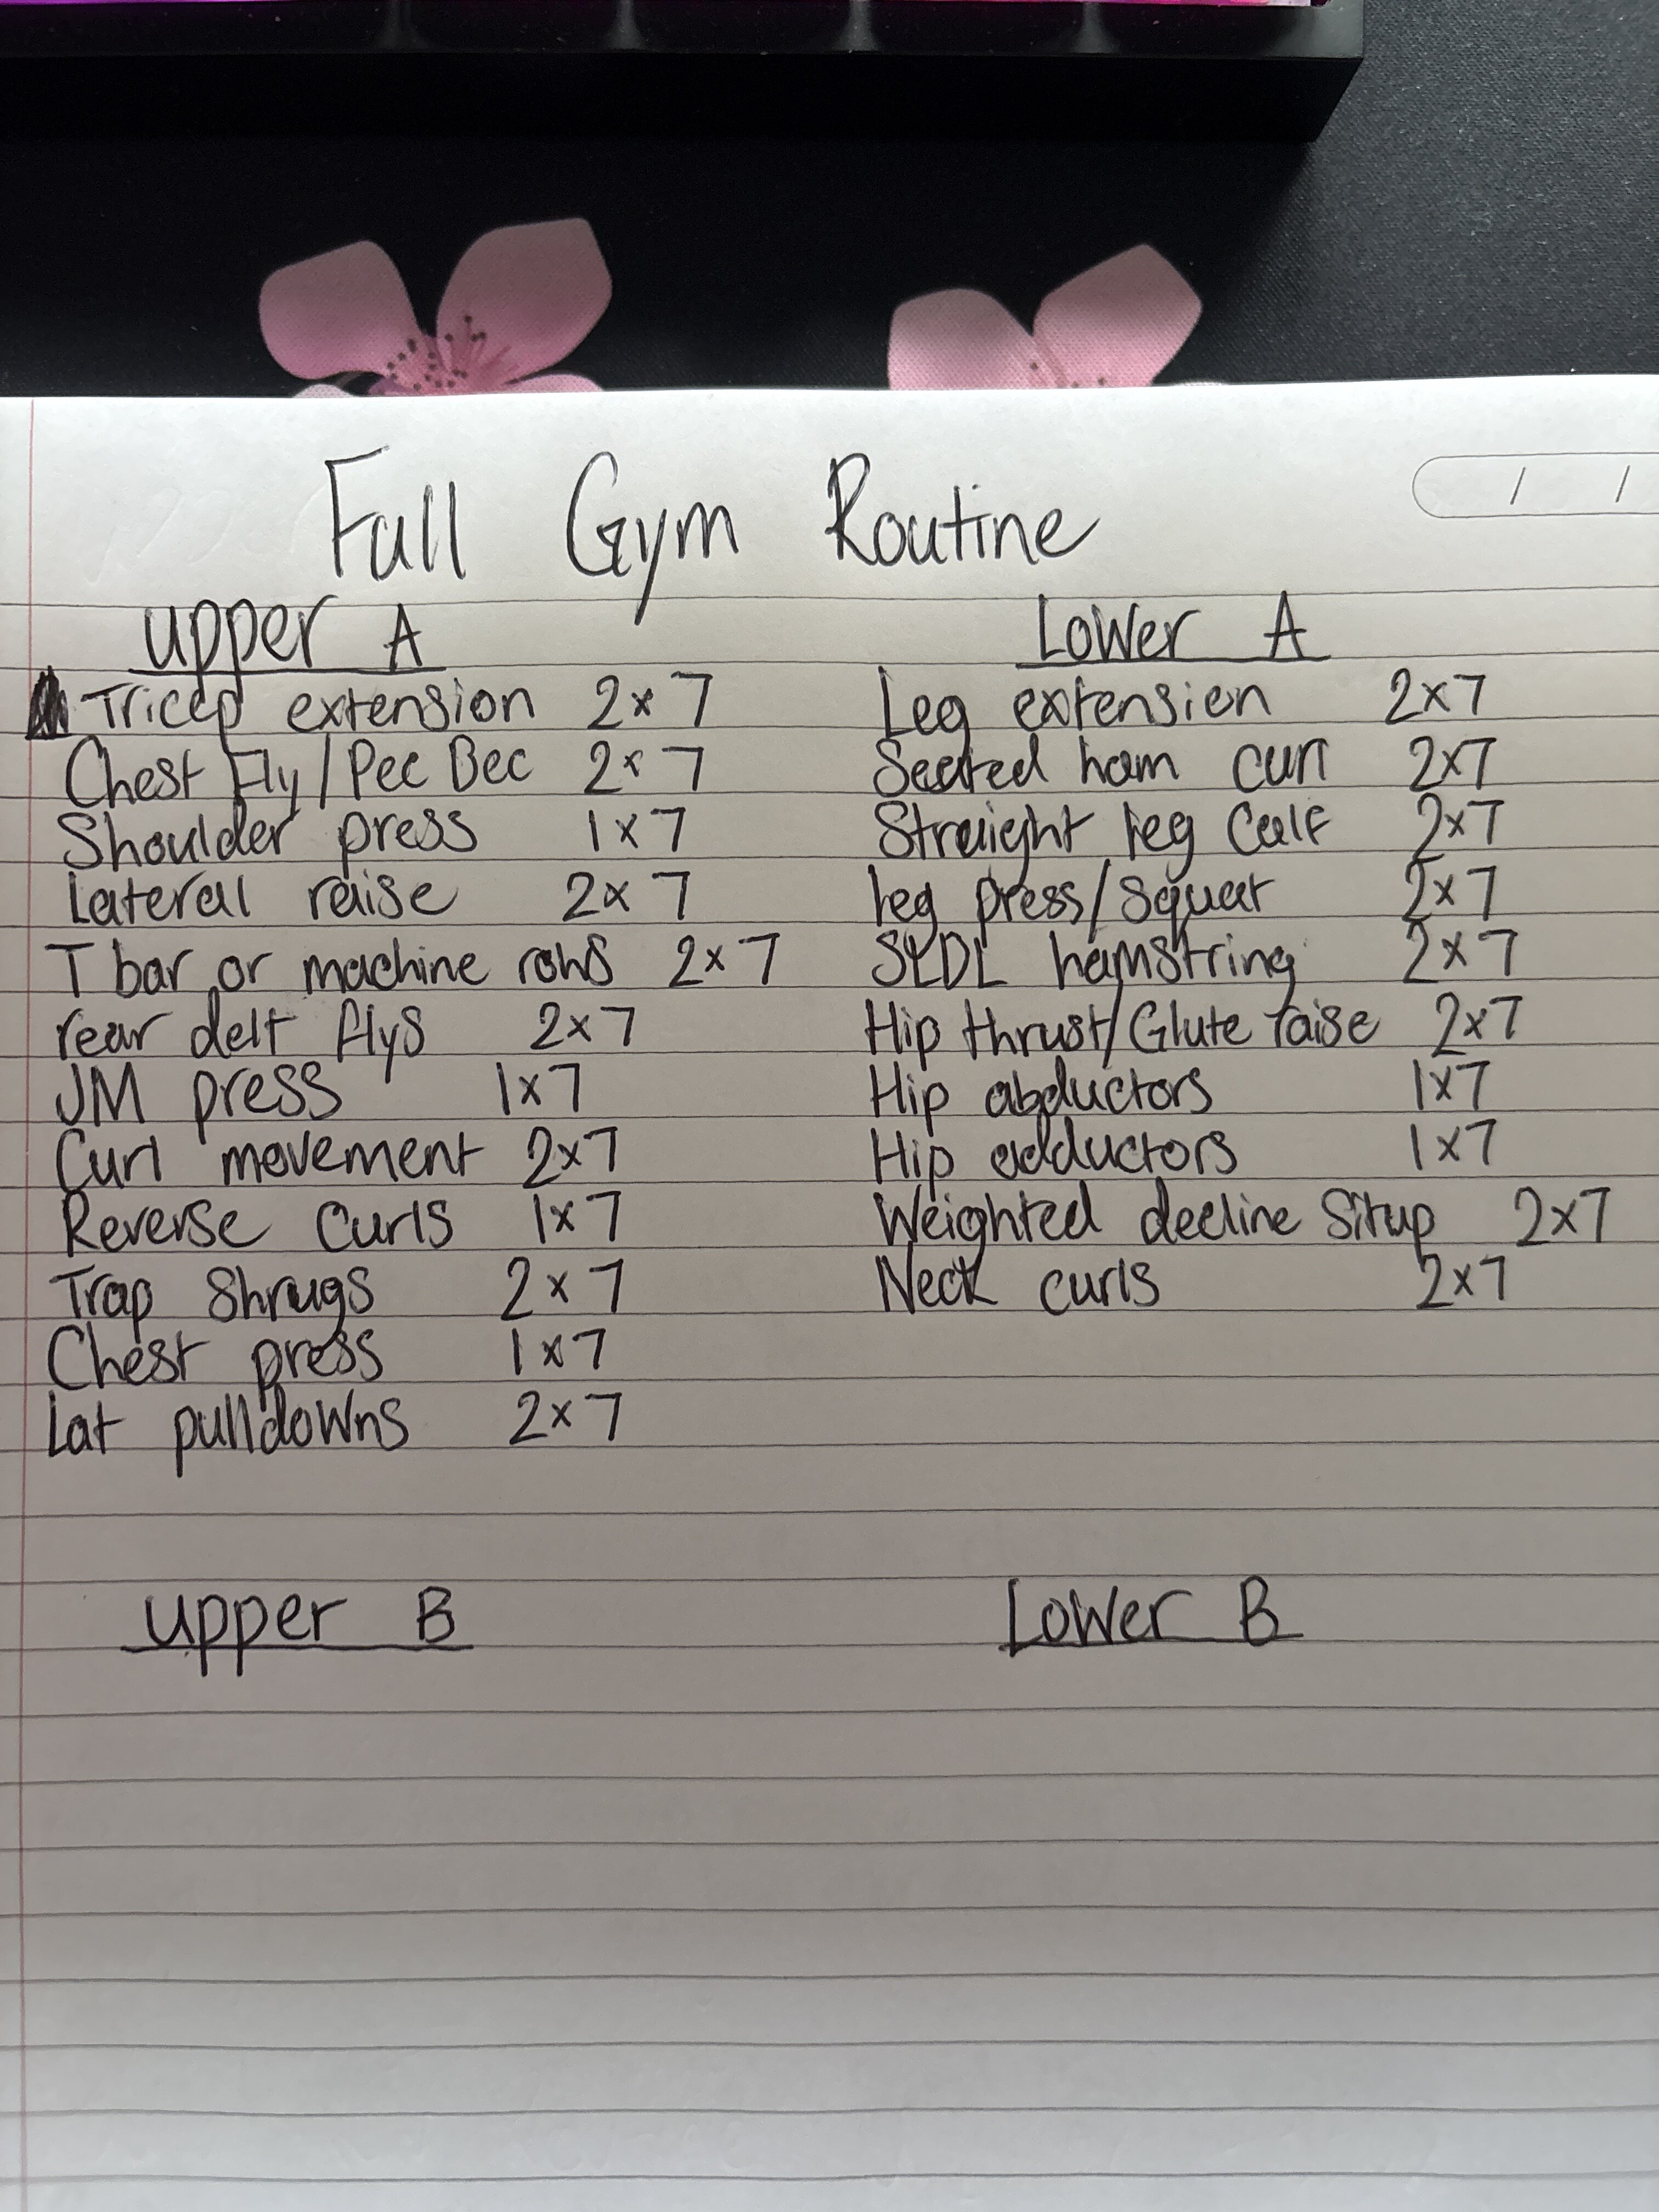 Full Gym Routine
upper A
Tricep extension 2x7
Chest Fly/Pec Dec 2x7
Shoulder press 1x7
Lateral raise 2x7
T bar or machine rows 2x7
rear delt flys 2x7
JM press 1x7
Curl movement 2x7
Reverse curls 1x7
Trap Shrugs 2x7
Chest press 1x7
Lat pulldowns 2x7
Lower A
Leg extension 2x7
Seated ham curl 2x7
Straight leg Calf 2x7
leg press/Squat 2x7
SLDL hamstring 2x7
Hip thrust/Glute raise 2x7
Hip abductors 1x7
Hip adductors 1x7
Weighted decline Situp 2x7
Neck curls 2x7
upper B
Lower B